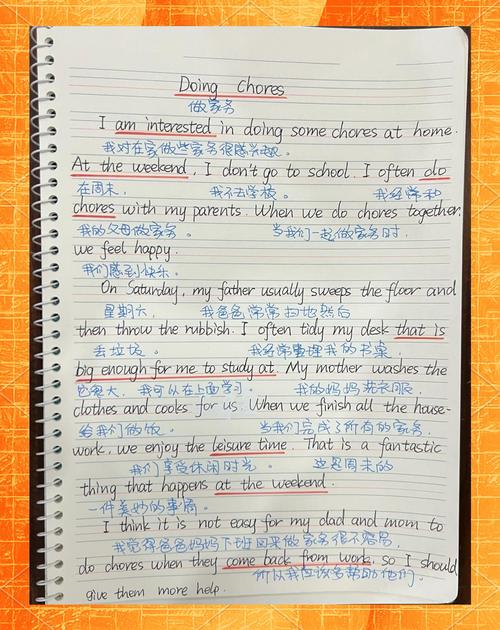 Doing Chores
做家务
I am interested in doing some chores at home.
我对在家做些家务很感兴趣。
At the weekend, I don't go to school. I often do
在周末, 我不去学校。 我经常和
chores with my parents. When we do chores together,
我的父母做家务。 当我们一起做家务时,
we feel happy.
我们感到快乐。
On Saturday, my father usually sweeps the floor and
星期六, 我爸爸常常扫地然后
then throw the rubbish. I often tidy my desk that is
丢垃圾。 我经常整理我的书桌,
big enough for me to study at. My mother washes the
它很大, 我可以在上面学习。 我的妈妈洗衣服,
clothes and cooks for us. When we finish all the house-
给我们做饭。 当我们完成了所有的家务,
work, we enjoy the leisure time. That is a fantastic
我们享受休闲时光。 这是周末的
thing that happens at the weekend.
一件美妙的事情。
I think it is not easy for my dad and mom to
我觉得爸爸妈妈下班回来做家务很不容易,
do chores when they come back from work, so I should
所以我应该多帮助他们。
give them more help.